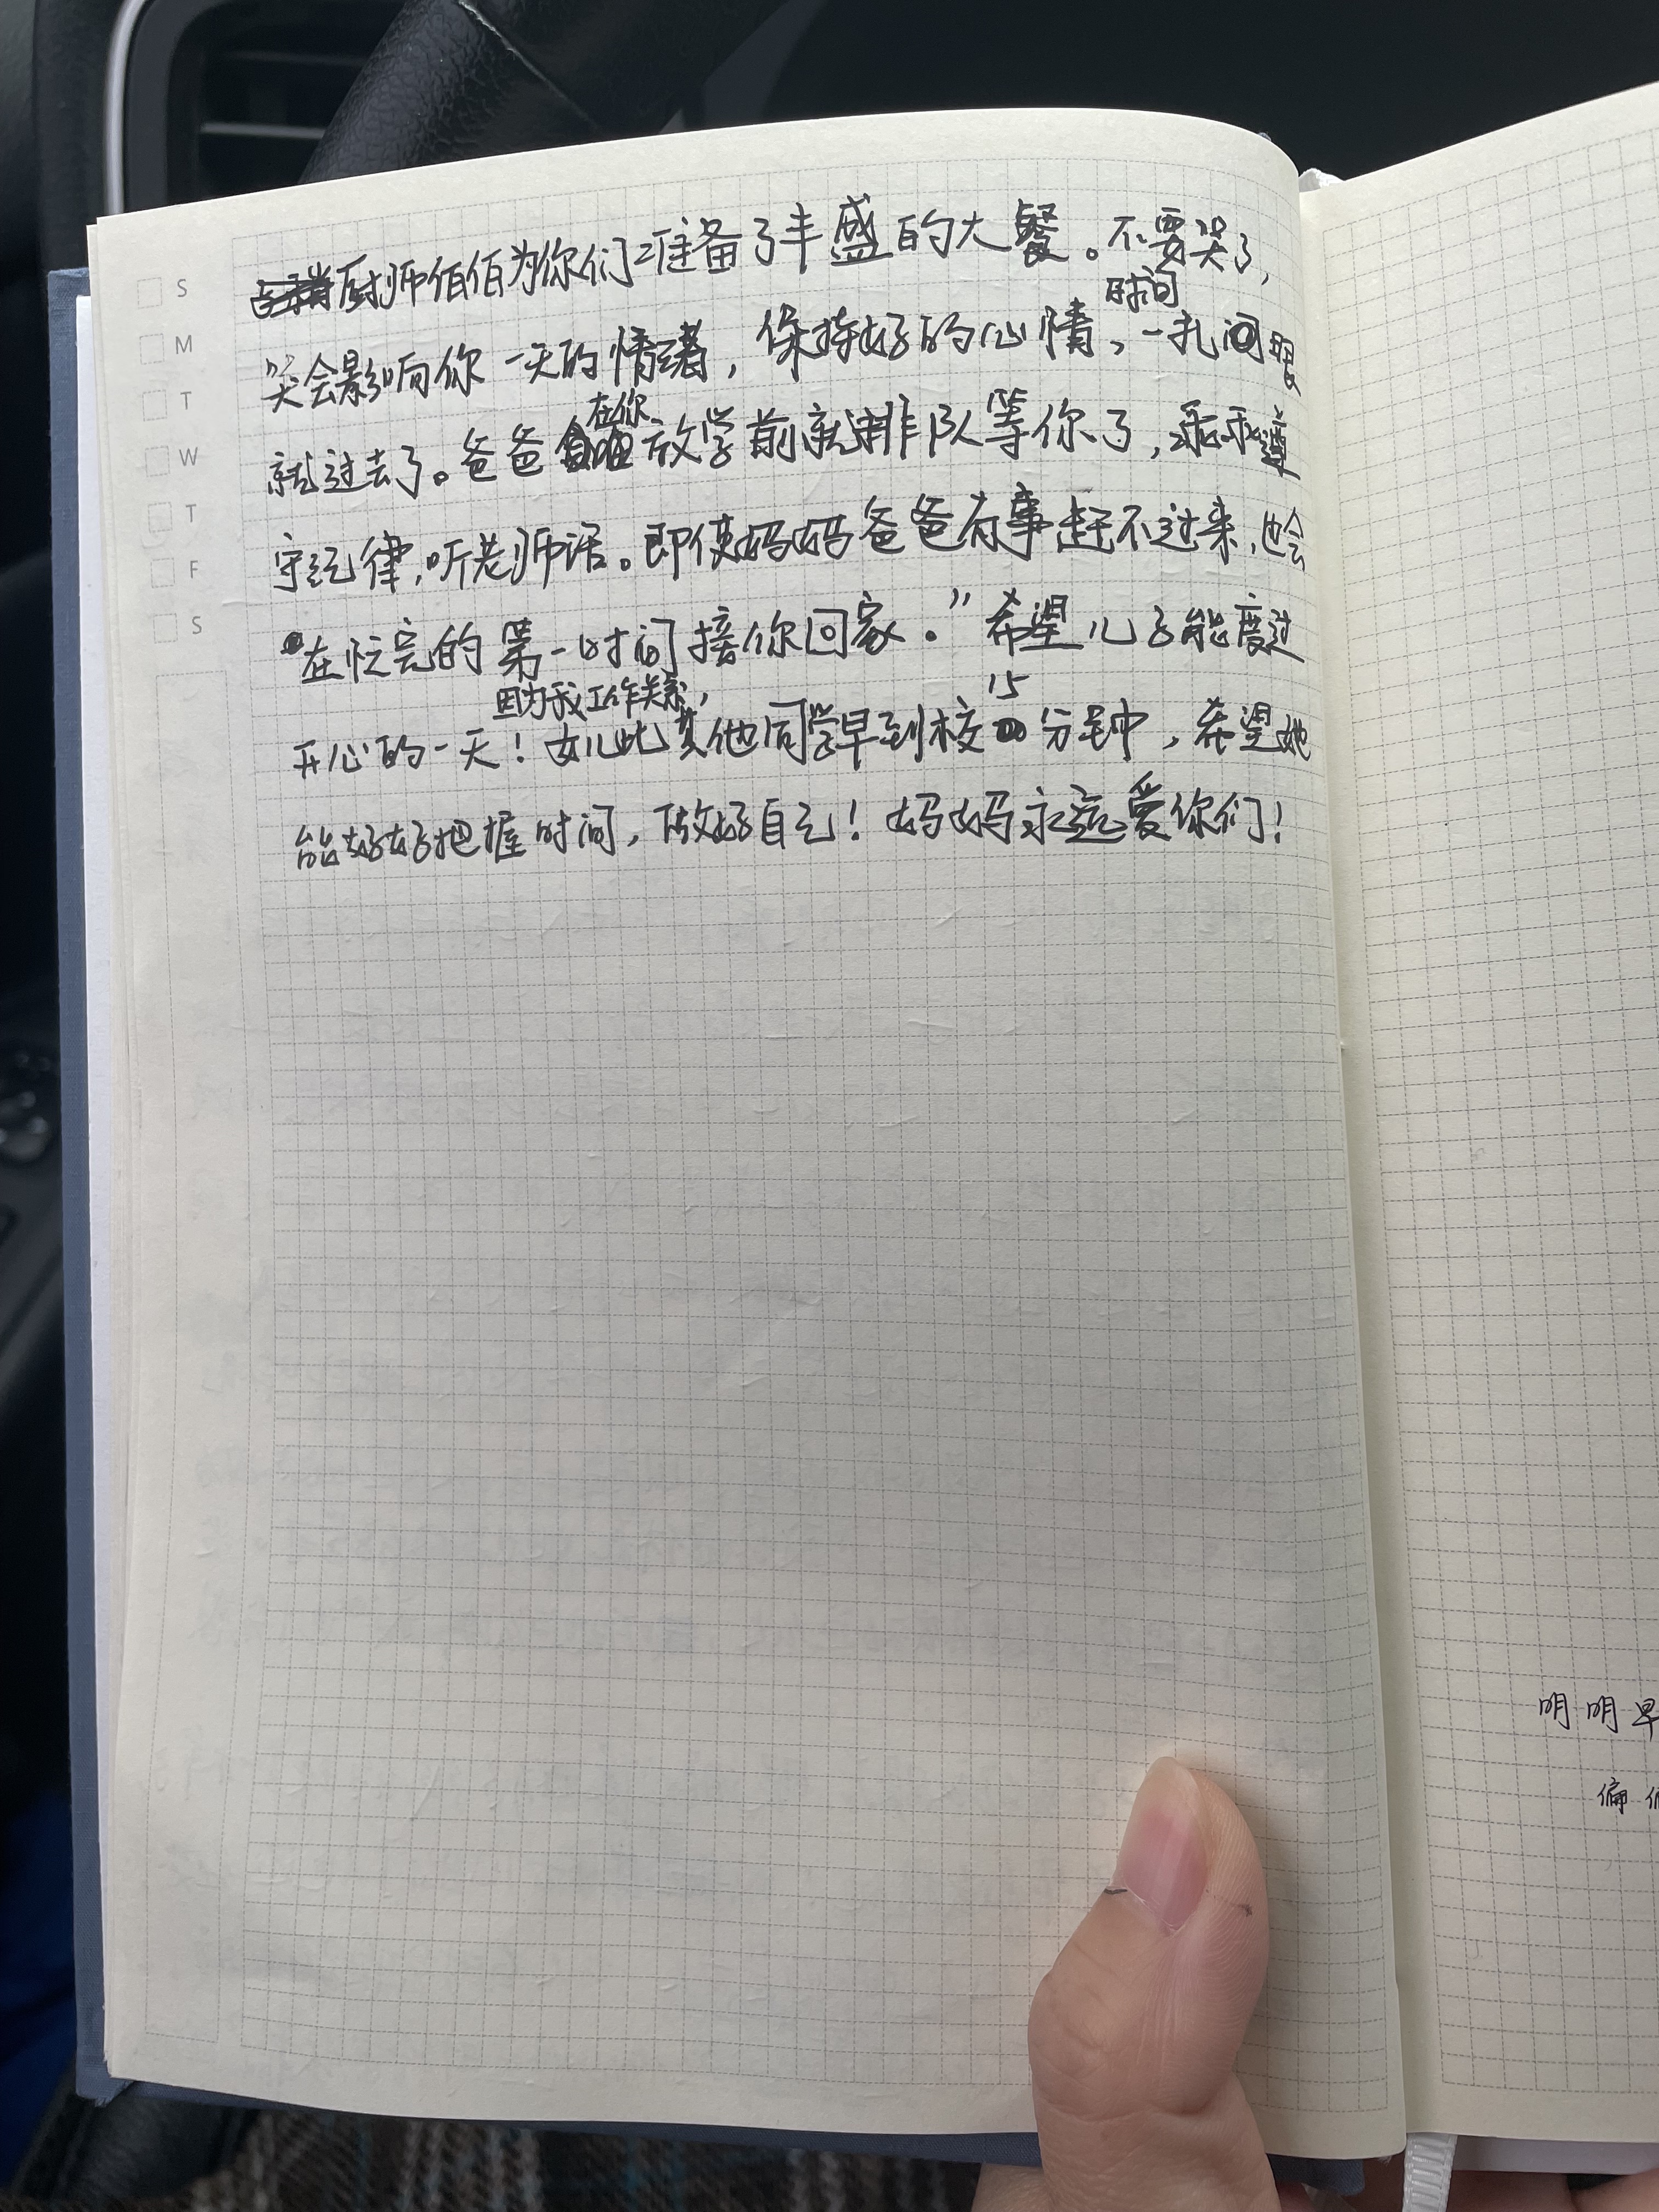 S
M
T
W
T
F
S
厨师佰佰为你们准备了丰盛的大餐。不要哭了,
时间
哭会影响你一天的情绪,保持好的心情,一扎眼
在你
就过去了。爸爸放学前就排队等你了,乖乖遵
守纪律,听老师话。即使妈妈爸爸有事赶不过来,也会
在忙完的第一时间接你回家。”希望儿子能度过
因为我工作关系,
15
开心的一天!女儿比其他同学早到校分钟,希望她
能好好把握时间,做好自己!妈妈永远爱你们!
明明早
偏